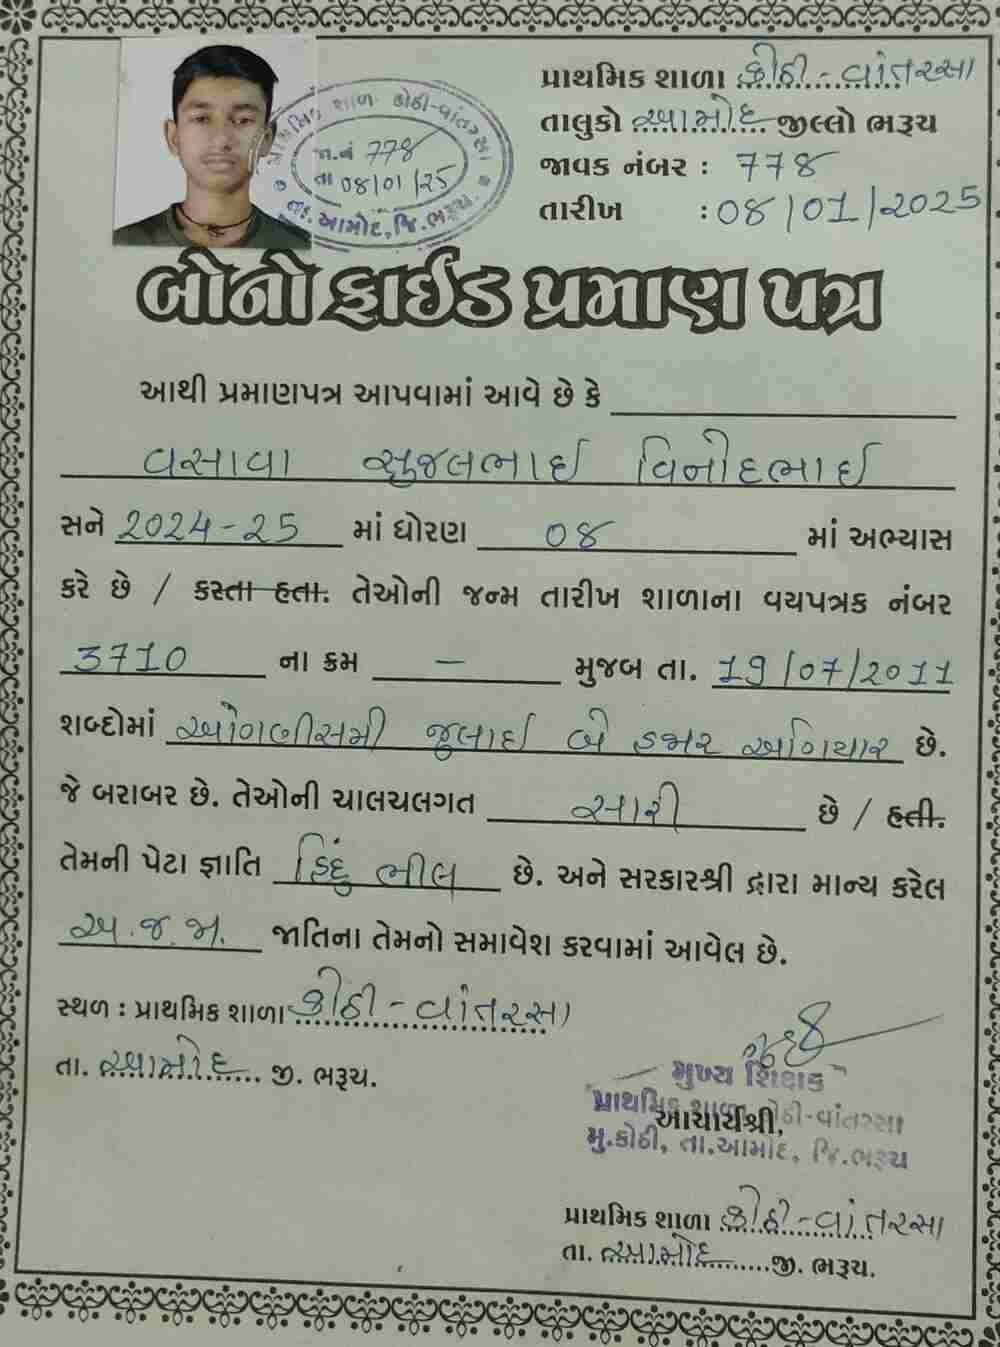 પ્રાથમિક શાળા કોઠી-વાંતરસા
તાલુકો આમોદ જીલ્લો ભરૂચ
જાવક નંબર : 778
તારીખ : 08/01/2025
પ્રાથમિક શાળા કોઠી-વાંતરસા
જા.નં 778
તા 08/01/25
તા. આમોદ, જિ. ભરૂચ.
બોનોફાઈડ પ્રમાણ પત્ર
આથી પ્રમાણપત્ર આપવામાં આવે છે કે
વસાવા સુજલભાઈ વિનોદભાઈ
સને 2024-25 માં ધોરણ 08 માં અભ્યાસ
કરે છે / કરતા હતા. તેઓની જન્મ તારીખ શાળાના વયપત્રક નંબર
3710 ના ક્રમ - મુજબ તા. 19/07/2011
શબ્દોમાં ઓગણીસમી જુલાઈ બે હજાર અગિયાર છે.
જે બરાબર છે. તેઓની ચાલચલગત સારી છે / હતી.
તેમની પેટા જ્ઞાતિ હિંદુ ભીલ છે. અને સરકારશ્રી દ્વારા માન્ય કરેલ
અ.જ.જા. જાતિના તેમનો સમાવેશ કરવામાં આવેલ છે.
સ્થળ : પ્રાથમિક શાળા કોઠી-વાંતરસા
તા. આમોદ જી. ભરૂચ.
મુખ્ય શિક્ષક
પ્રાથમિક શાળા કોઠી-વાંતરસા
આચાર્યશ્રી,
મુ.કોઠી, તા.આમોદ, જિ.ભરૂચ
પ્રાથમિક શાળા કોઠી-વાંતરસા
તા. આમોદ જી. ભરૂચ.